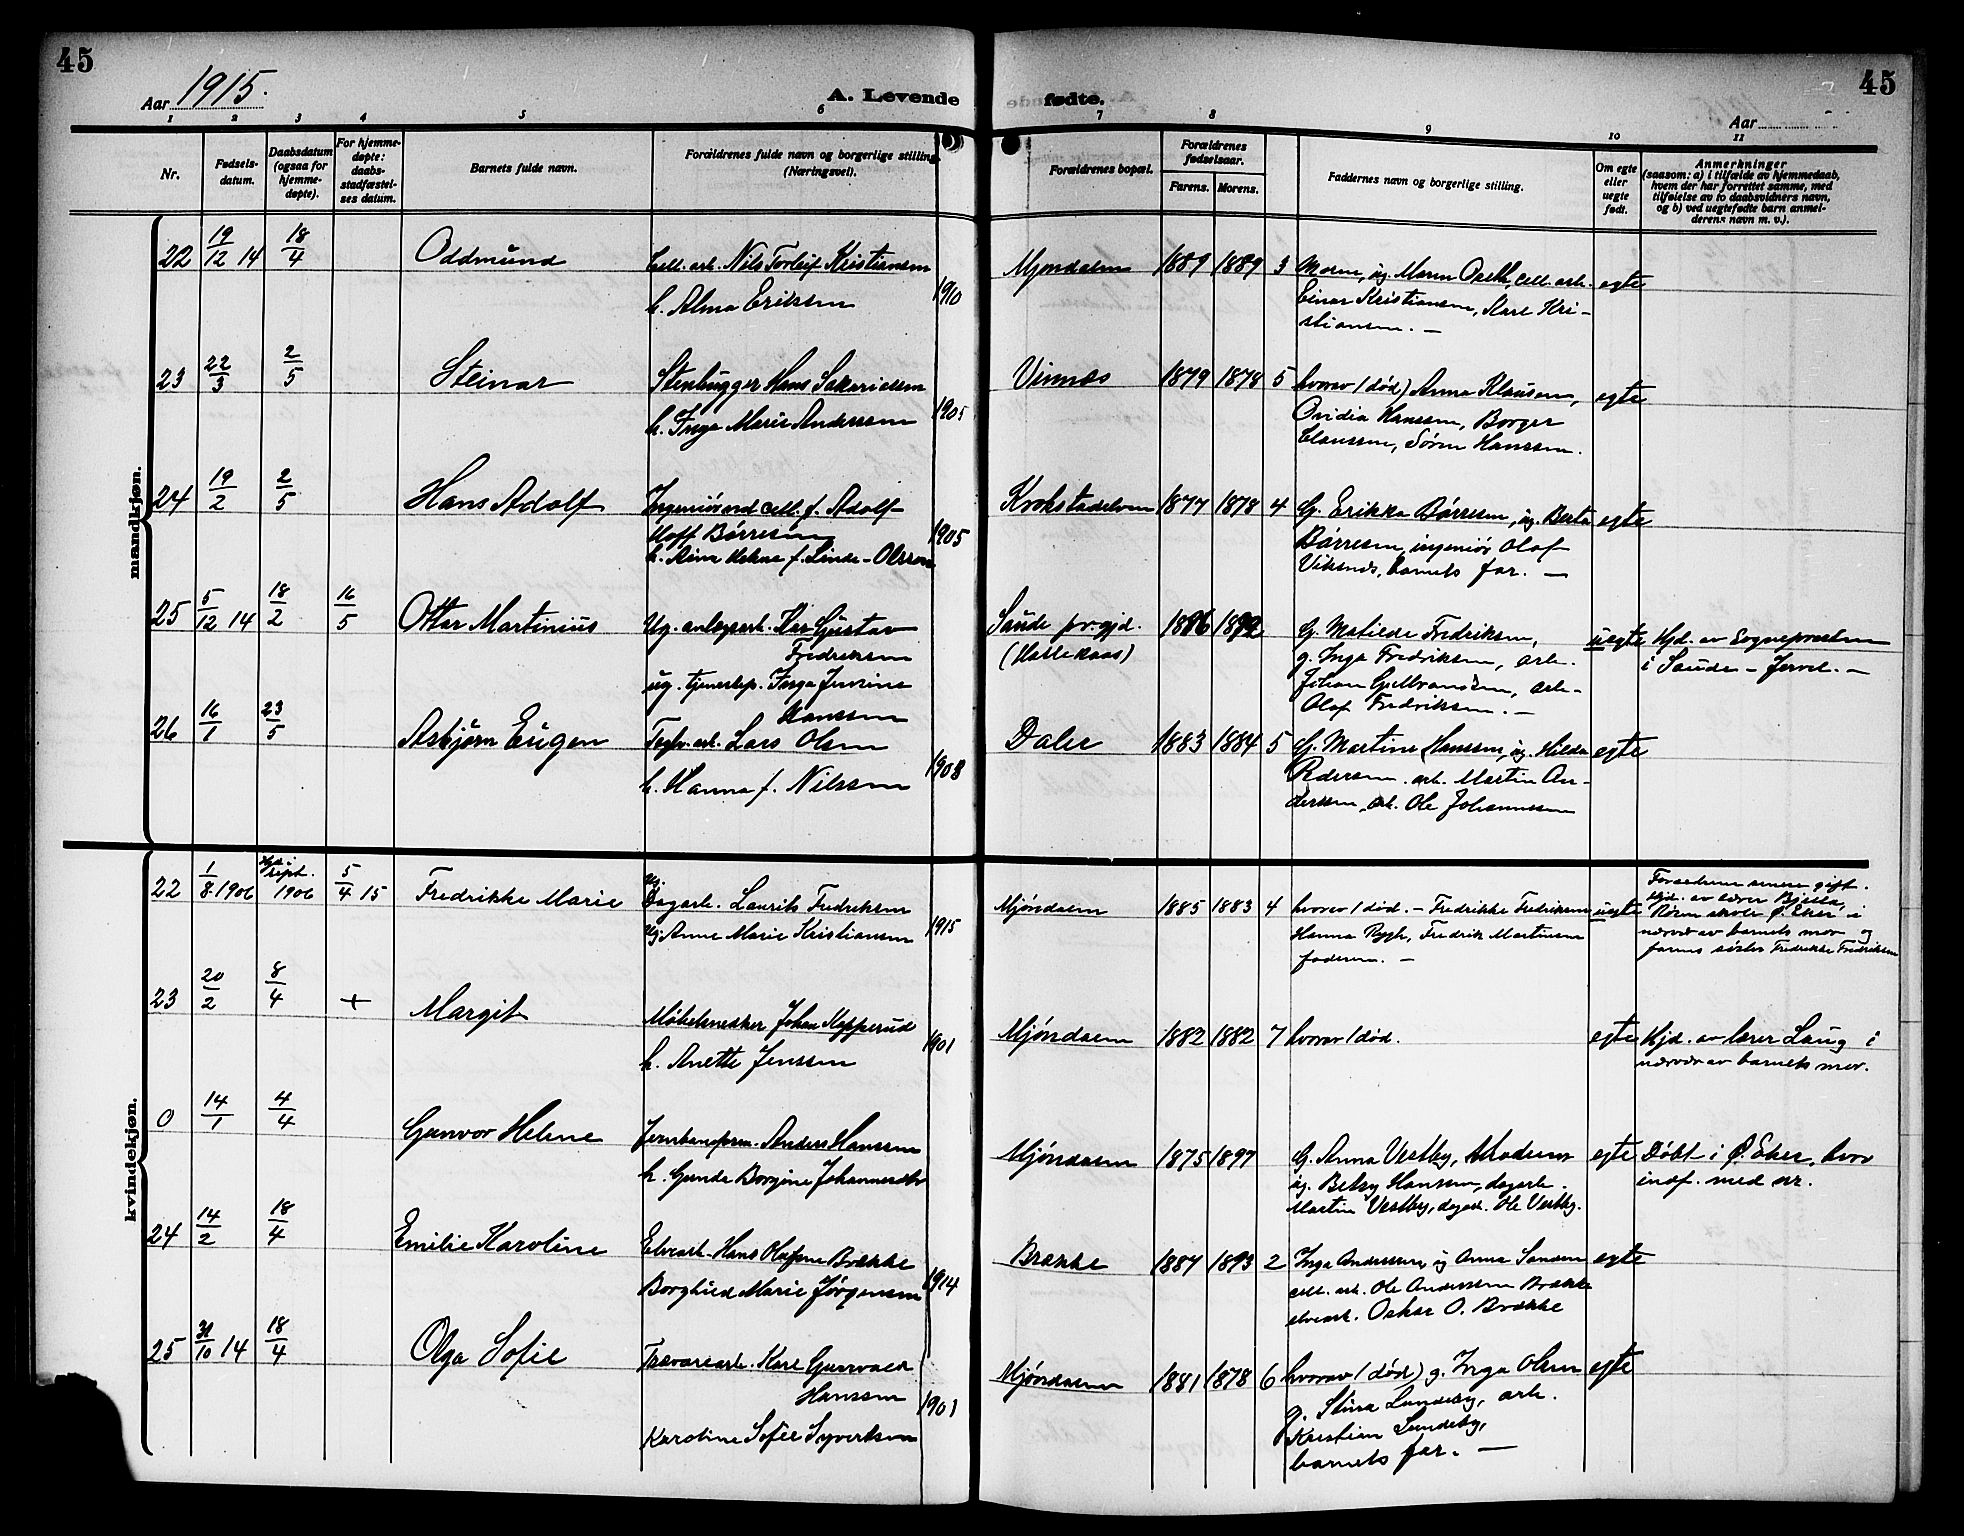 45
45
Aar 1915.
A. Levende
fødte.
Aar
1
2
3
4
5
6
7
8
9
10
11
Nr.
Fødsels-
datum.
Daabsdatum
(ogsaa for
hjemme-
døpte).
For hjemme-
døpte:
daabs-
stadfæstel-
ses datum.
Barnets fulde navn.
Forældrenes fulde navn og borgerlige stilling
(Næringsvei).
Forældrenes bopæl.
Forældrenes
fødselsaar.
Farens.
Morens.
Faddernes navn og borgerlige stilling.
Om egte
eller
uegte
født.
Anmerkninger
(saasom: a) i tilfælde av hjemmedaab,
hvem der har forrettet samme, med
tilføielse av to daabsvidners navn,
og b) ved uegtefødte barn anmel-
derens navn m. v.).
mandkjøn.
22 19/12 14 18/4 Oddmund Cell. arb. Nils Torleif Kristiansen
h. Alma Eriksen 1910
Mjøndalen 1889 1889 3 Moren, ug. Maren Opseth, cell. arb.
Einar Kristiansen, Karl Kri-
stiansen. —
egte
23 22/3 2/5 Steinar Stenhugger Hans Sakariassen
h. Inga Marie Anderssen 1905
Vinnes 1879 1878 5 hvorav 1 død) Anna Klausen,
Ovidia Hanssen, Borger
Claussen, Søren Hanssen.
egte
24 19/2 2/5 Hans Adolf Ingeniør ved cell. f. Adolf
Hoff Børresen
f. Linde-Olsson 1905
Krokstadelven 1877 1878 4 G. Erikka Børresen, ug. Berta
Børresen, ingeniør Olaf
barnets far. —
egte
25 5/12 14 18/2 16/5 Ottar Martinius Ug. anlegsarb. Karl Gustav
Fredriksen
ug. tjenestep. Inga Jensine
Hanssen
Saude pr.gjd.
(Hasle kaas)
1886 1892 G. Matilde Fredriksen,
g. Inga Fredriksen, arb.
Johan Gulbrandsen, arb.
Olaf Fredriksen. —
uegte Hjd. av Sognepresten
i Saude —
26 16/1 23/5 Asbjørn Eugen Teglv. arb. Lars Olsen
h. Hanna f. Nilssen 1908
Daler 1883 1884 5 G. Martine Hanssen, ug. Hilda
Pedersen. arb. Martin An-
derssen, arb. Ole Johannessen
egte
kvindekjøn.
22 1/8 1906 Hjd. i sept. 1906 5/4 15 Fredrikke Marie Ug. Dagarb. Laurits Fredriksen
Ug. Anne Marie Kristiansen 1915
Mjøndalen 1885 1883 4 hvorav 1 død. — Fredrikke Fredriksen
Hanna Rygh, Fredrik Martinsen
faderen. —
uegte Forældrene senere gift.
Hjd. av lærer Bjella,
Røren skole Ø. Eker i
nærvær av barnets mor og
farens søster Fredrikke Fredriksen
23 20/2 8/4 + Margit Møbelsnekker Johan Kopperud
h. Anette Jenssen 1901
Mjøndalen 1882 1882 7 hvorav 1 død.
egte Hjd. av lærer Laug i
nærvær av barnets mor.
0 14/1 4/4 Gunvor Helene Jernbaneform. Anders Hanssen
h. Gunda Borgine Johannesdtr
Mjøndalen 1875 1897 G. Anna Vestby, Moderen
ug. Betzy Hanssen, dagarb.
Martin Vestby, dagarb. Ole Vestby.
egte Døbt i Ø. Eker, hvor
indf. med nr.
24 14/2 18/4 Emilie Karoline Elvearb. Hans Olafsen Brække
Borghild Marie Jørgensen 1914
Brække 1887 1893 2 Inga Anderssen, ug Anna Sanden
cell. arb. Ole Anderssen Brække
elvearb. Oskar O. Brække
egte
25 31/10 14 18/4 Olga Sofie Trævarearb. Karl Gunvald
Hanssen
Karoline Sofie Syvertsen 1901
Mjøndalen 1881 1878 6 hvorav 1 død) g. Inga Olsen
g. Stina Lundeby, arb.
Kristian Lundeby,
barnets far. —
egte